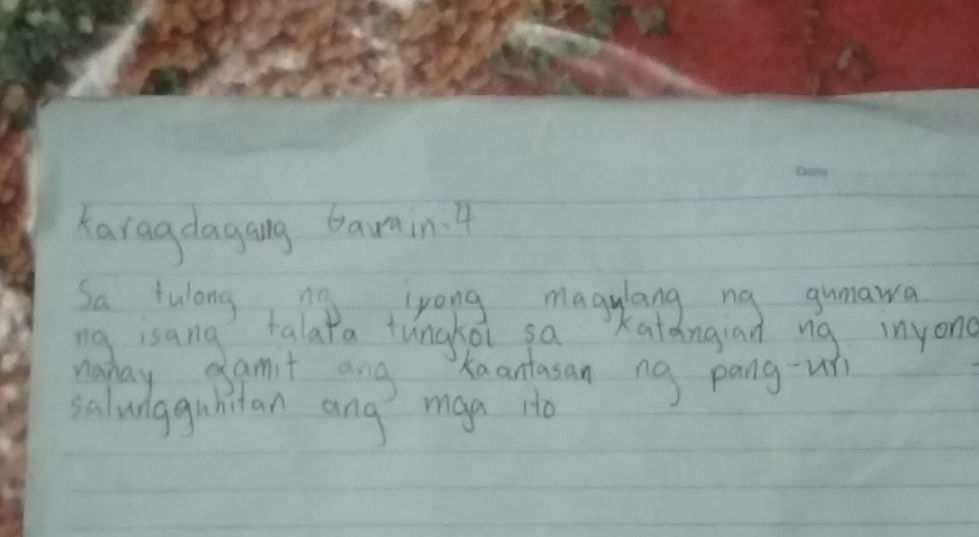 Date
Karagdagang Gawain.4
Sa tulong ng iyong magulang ng gumawa
ng isang talata tungkol sa katangian ng inyong
nanay gamit ang kaantasan ng pang-uri
salungguhitan ang mga ito